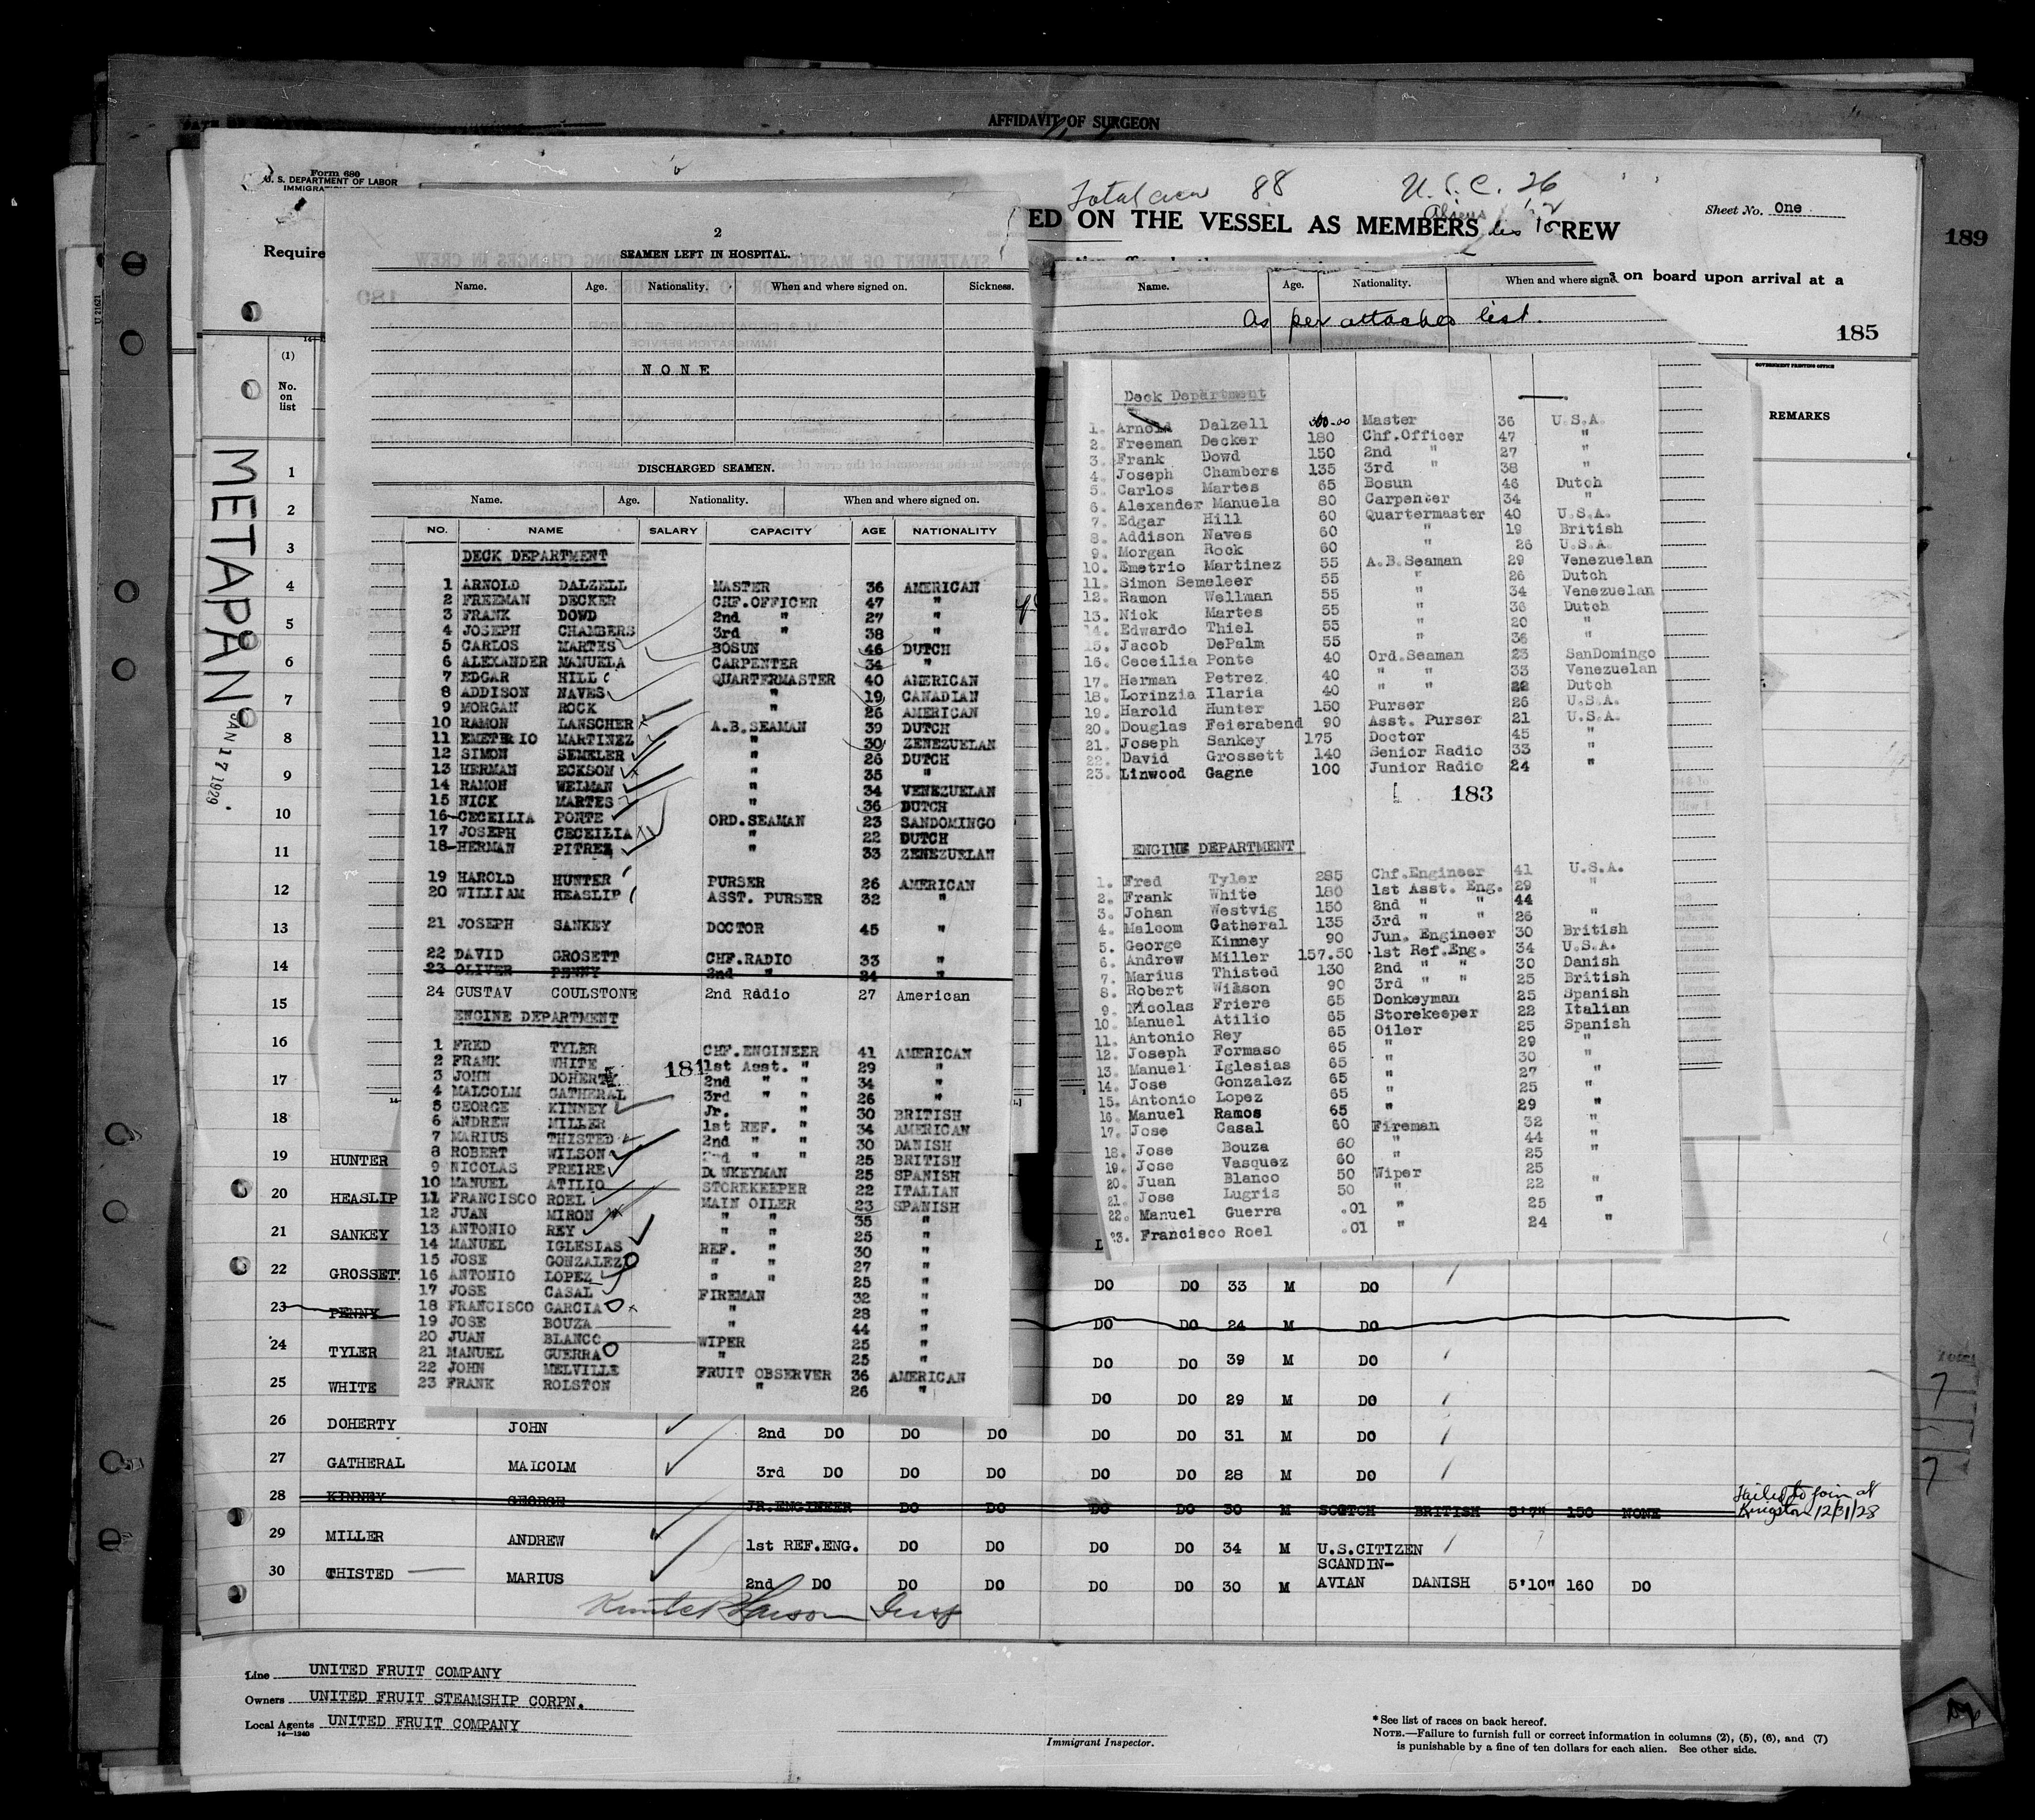 AFFIDAVIT OF SURGEON
Form 680
U. S. DEPARTMENT OF LABOR
Total crew 88 U.S.C. 26
Aliens
ED ON THE VESSEL AS MEMBERS CREW
Sheet No. One
189
Require
on board upon arrival at a
185
GOVERNMENT PRINTING OFFICE
REMARKS
(1)
No.
on
list
METAPAN
JAN 17 1929
U 21621
2
SEAMEN LEFT IN HOSPITAL.
Name. Age. Nationality. When and where signed on. Sickness.
NONE
DISCHARGED SEAMEN.
Name. Age. Nationality. When and where signed on.
Name. Age. Nationality. When and where signe
As per attached list.
NO. NAME SALARY CAPACITY AGE NATIONALITY
DECK DEPARTMENT
1 ARNOLD DALZELL MASTER 36 AMERICAN
2 FREEMAN DECKER CHF.OFFICER 47 "
3 FRANK DOWD 2nd " 27 "
4 JOSEPH CHAMBERS 3rd " 38 "
5 CARLOS MARTES BOSUN 46 DUTCH
6 ALEXANDER MANUELA CARPENTER 34 "
7 EDGAR HILL QUARTERMASTER 40 AMERICAN
8 ADDISON NAVES " 19 CANADIAN
9 MORGAN ROCK " 26 AMERICAN
10 RAMON LANSCHER A.B.SEAMAN 39 DUTCH
11 EMETERIO MARTINEZ " 30 ZENEZUELAN
12 SIMON SEMELER " 26 DUTCH
13 HERMAN ECKSON " 35 "
14 RAMON WELMAN " 34 VENEZUELAN
15 NICK MARTES " 36 DUTCH
16 CECEILIA PONTE ORD.SEAMAN 23 SANDOMINGO
17 JOSEPH CECEILIA " 22 DUTCH
18 HERMAN PITREZ " 33 ZENEZUELAN
19 HAROLD HUNTER PURSER 26 AMERICAN
20 WILLIAM HEASLIP ASST. PURSER 32 "
21 JOSEPH SANKEY DOCTOR 45 "
22 DAVID GROSETT CHF.RADIO 33 "
23 OLIVER PENNY 2nd " 24 "
24 GUSTAV COULSTONE 2nd Radio 27 American
ENGINE DEPARTMENT
181
1 FRED TYLER CHF.ENGINEER 41 AMERICAN
2 FRANK WHITE 1st Asst. " 29 "
3 JOHN DOHERTY 2nd " " 34 "
4 MALCOLM GATHERAL 3rd " " 26 "
5 GEORGE KINNEY Jr. " 30 BRITISH
6 ANDREW MILLER 1st REF. " 34 AMERICAN
7 MARIUS THISTED 2nd " " 30 DANISH
8 ROBERT WILSON " " 25 BRITISH
9 NICOLAS FREIRE DONKEYMAN 25 SPANISH
10 MANUEL ATILIO STOREKEEPER 22 ITALIAN
11 FRANCISCO ROEL MAIN OILER 23 SPANISH
12 JUAN MIRON " " 35 "
13 ANTONIO REY " " 25 "
14 MANUEL IGLESIAS REF. " 30 "
15 JOSE GONZALEZ " " 27 "
16 ANTONIO LOPEZ " " 25 "
17 JOSE CASAL FIREMAN 32 "
18 FRANCISCO GARCIA " 28 "
19 JOSE BOUZA " 44 "
20 JUAN BLANCO WIPER 25 "
21 MANUEL GUERRA " 25 "
22 JOHN MELVILLE FRUIT OBSERVER 36 AMERICAN
23 FRANK ROLSTON " 26 "
Deck Department
1. Arnold Dalzell Master 36 U.S.A.
2. Freeman Decker 180 Chf.Officer 47 "
3. Frank Dowd 150 2nd " 27 "
4. Joseph Chambers 135 3rd " 38 "
5. Carlos Martes 65 Bosun 46 Dutch
6. Alexander Manuela 80 Carpenter 34 "
7. Edgar Hill 60 Quartermaster 40 U.S.A.
8. Addison Naves 60 " 19 British
9. Morgan Rock 60 " 26 U.S.A.
10. Emetrio Martinez 55 A.B.Seaman 29 Venezuelan
11. Simon Semeleer 55 " 26 Dutch
12. Ramon Wellman 55 " 34 Venezuelan
13. Nick Martes 55 " 36 Dutch
14. Edwardo Thiel 55 " 20 "
15. Jacob DePalm 55 " 36 "
16. Ceceilia Ponte 40 Ord.Seaman 23 SanDomingo
17. Herman Petrez 40 " " 33 Venezuelan
18. Lorinzia Ilaria 40 " " 22 Dutch
19. Harold Hunter 150 Purser 26 U.S.A.
20. Douglas Feierabend 90 Asst. Purser 21 U.S.A.
21. Joseph Sankey 175 Doctor 45 "
22. David Grossett 140 Senior Radio 33 "
23. Linwood Gagne 100 Junior Radio 24 "
183
ENGINE DEPARTMENT
1. Fred Tyler 285 Chf.Engineer 41 U.S.A.
2. Frank White 180 1st Asst. Eng. 29 "
3. Johan Westvig 150 2nd " " 44
4. Malcom Gatheral 135 3rd " " 26 "
5. George Kinney 90 Jun. Engineer 30 British
6. Andrew Miller 157.50 1st Ref.Eng. 34 U.S.A.
7. Marius Thisted 130 2nd " " 30 Danish
8. Robert Wilson 90 3rd " " 25 British
9. Nicolas Friere 65 Donkeyman 25 Spanish
10. Manuel Atilio 65 Storekeeper 22 Italian
11. Antonio Rey 65 Oiler 25 Spanish
12. Joseph Formaso 65 " 29 "
13. Manuel Iglesias 65 " 30 "
14. Jose Gonzalez 65 " 27 "
15. Antonio Lopez 65 " 25 "
16. Manuel Ramos 65 " 29 "
17. Jose Casal 60 Fireman 32 "
18. Jose Bouza 60 " 44 "
19. Jose Vasquez 60 " 25 "
20. Juan Blanco 50 Wiper 25 "
21. Jose Lugris 50 " 22 "
22. Manuel Guerra .01 " 25 "
23. Francisco Roel .01 " 24 "
1
2
3
4
5
6
7
8
9
10
11
12
13
14
15
16
17
18
19 HUNTER
20 HEASLIP
21 SANKEY
22 GROSSETT DO DO 33 M DO
23 PENNY DO DO 24 M DO
24 TYLER DO DO 39 M DO
25 WHITE DO DO 29 M DO
26 DOHERTY JOHN 2nd DO DO DO DO DO 31 M DO
27 GATHERAL MALCOLM 3rd DO DO DO DO DO 28 M DO
28 KINNEY GEORGE JR.ENGINEER DO DO DO DO 30 M SCOTCH BRITISH 5'7" 150 NONE Failed to join at Kingston 12/31/28
29 MILLER ANDREW 1st REF.ENG. DO DO DO DO 34 M U.S.CITIZEN
30 THISTED MARIUS 2nd DO DO DO DO DO 30 M SCANDIN-AVIAN DANISH 5'10" 160 DO
Line UNITED FRUIT COMPANY
Owners UNITED FRUIT STEAMSHIP CORPN.
Local Agents UNITED FRUIT COMPANY
14—1240
Immigrant Inspector.
* See list of races on back hereof.
NOTE.—Failure to furnish full or correct information in columns (2), (5), (6), and (7)
is punishable by a fine of ten dollars for each alien. See other side.